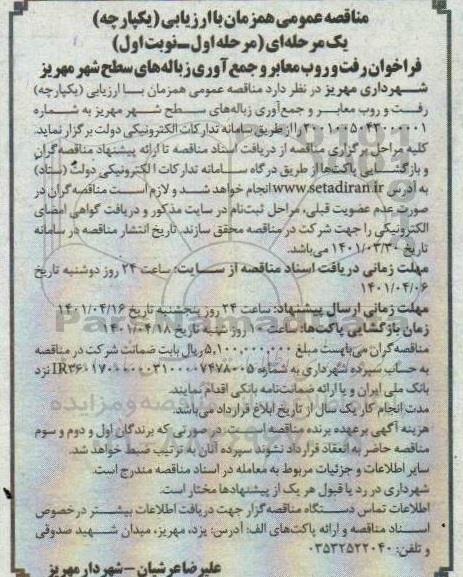 مناقصه عمومی همزمان با ارزیابی (یکپارچه)
یک مرحله‌ای (مرحله اول – نوبت اول)
فراخوان رفت و روب معابر و جمع آوری زباله‌های سطح شهر مهریز
شهرداری مهریز در نظر دارد مناقصه عمومی همزمان با ارزیابی (یکپارچه)
رفت و روب معابر و جمع‌آوری زباله‌های سطح شهر مهریز به شماره
را از طریق سامانه تدارکات الکترونیکی دولت برگزار نماید.
کلیه مراحل برگزاری مناقصه از دریافت اسناد مناقصه تا ارائه پیشنهاد مناقصه‌گران
و بازگشایی پاکت‌ها از طریق درگاه سامانه تدارکات الکترونیکی دولت (ستاد)
به آدرس www.setadiran.ir انجام خواهد شد و لازم است مناقصه‌گران در
صورت عدم عضویت قبلی، مراحل ثبت‌نام در سایت مذکور و دریافت گواهی امضای
الکترونیکی را جهت شرکت در مناقصه محقق سازند. تاریخ انتشار مناقصه در سامانه
تاریخ ۱۴۰۱/۰۳/۳۰ می‌باشد.
مهلت زمانی دریافت اسناد مناقصه از سایت: ساعت ۲۴ روز دوشنبه تاریخ
۱۴۰۱/۰۴/۰۶
مهلت زمانی ارسال پیشنهاد: ساعت ۲۴ روز پنجشنبه تاریخ ۱۴۰۱/۰۴/۱۶
زمان بازگشایی پاکت‌ها: ساعت ۱۰ روز شنبه تاریخ ۱۴۰۱/۰۴/۱۸
مناقصه‌گران می‌بایست مبلغ ۵,۱۰۰,۰۰۰,۰۰۰ ریال بابت ضمانت شرکت در مناقصه
به حساب سپرده شهرداری به شماره نزد
بانک ملی ایران و یا ارائه ضمانت‌نامه بانکی اقدام نمایند.
مدت انجام کار یک سال از تاریخ ابلاغ قرارداد می‌باشد.
هزینه آگهی بر عهده برنده مناقصه است. در صورتی که برندگان اول و دوم و سوم
مناقصه حاضر به انعقاد قرارداد نشوند سپرده آنان به ترتیب ضبط خواهد شد.
سایر اطلاعات و جزئیات مربوط به معامله در اسناد مناقصه مندرج است.
شهرداری در رد یا قبول هر یک از پیشنهادها مختار است.
اطلاعات تماس دستگاه مناقصه‌گزار جهت دریافت اطلاعات بیشتر در خصوص
اسناد مناقصه و ارائه پاکت‌های الف: آدرس: یزد، مهریز، میدان شهید صدوقی
و تلفن: ۰۳۵۳۲۵۲۲۰۴۰
علیرضا عرشیان – شهردار مهریز